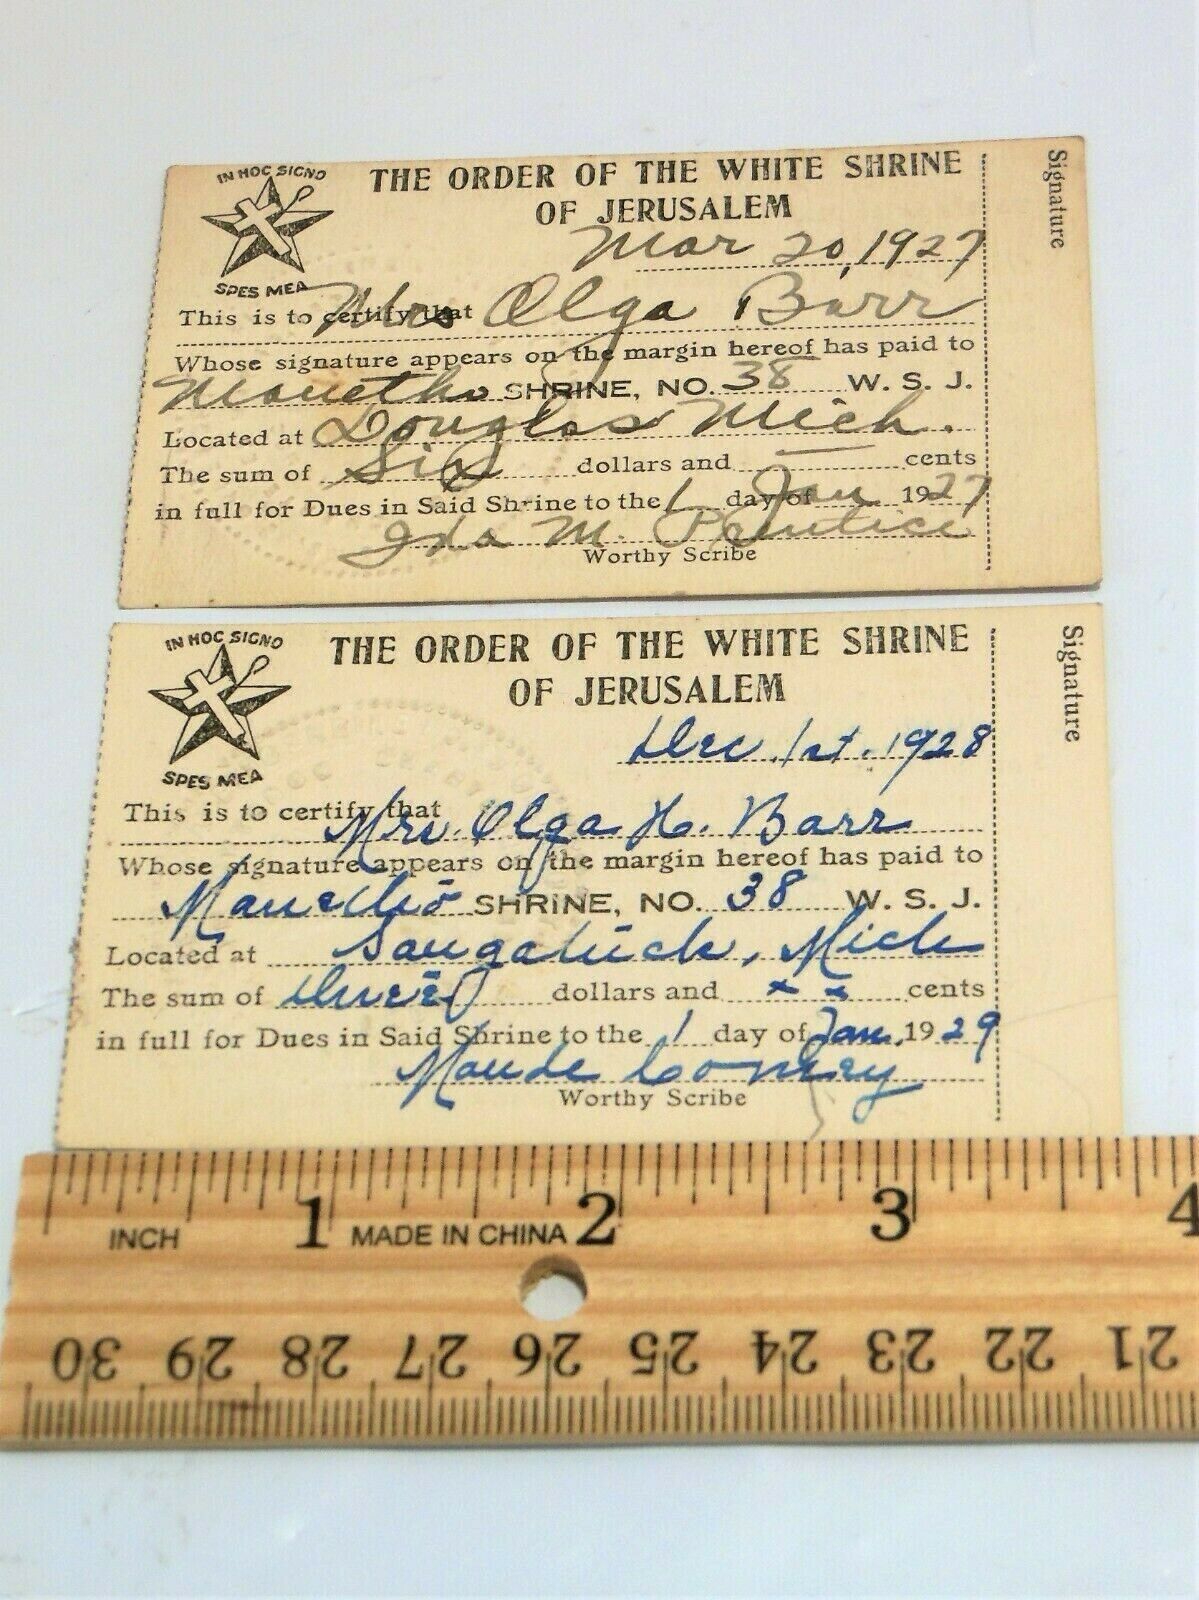 IN HOC SIGNO
SPES MEA
THE ORDER OF THE WHITE SHRINE
OF JERUSALEM
Signature
Mar 20, 1927
This is to certify that Mrs Olga Barr
Whose signature appears on the margin hereof has paid to
Manetho SHRINE, NO. 38 W. S. J.
Located at Douglas Mich.
The sum of Six dollars and — cents
in full for Dues in Said Shrine to the 1 day of Jan 1927
Ida M. Prentice
Worthy Scribe
IN HOC SIGNO
SPES MEA
THE ORDER OF THE WHITE SHRINE
OF JERUSALEM
Signature
Dec. 1st. 1928
This is to certify that Mrs. Olga H. Barr
Whose signature appears on the margin hereof has paid to
Manetho SHRINE, NO. 38 W. S. J.
Located at Saugatuck, Mich
The sum of Three dollars and x x cents
in full for Dues in Said Shrine to the 1 day of Jan. 1929
Maude
Worthy Scribe
INCH 1 MADE IN CHINA 2 3 4
30 29 28 27 26 25 24 23 22 21